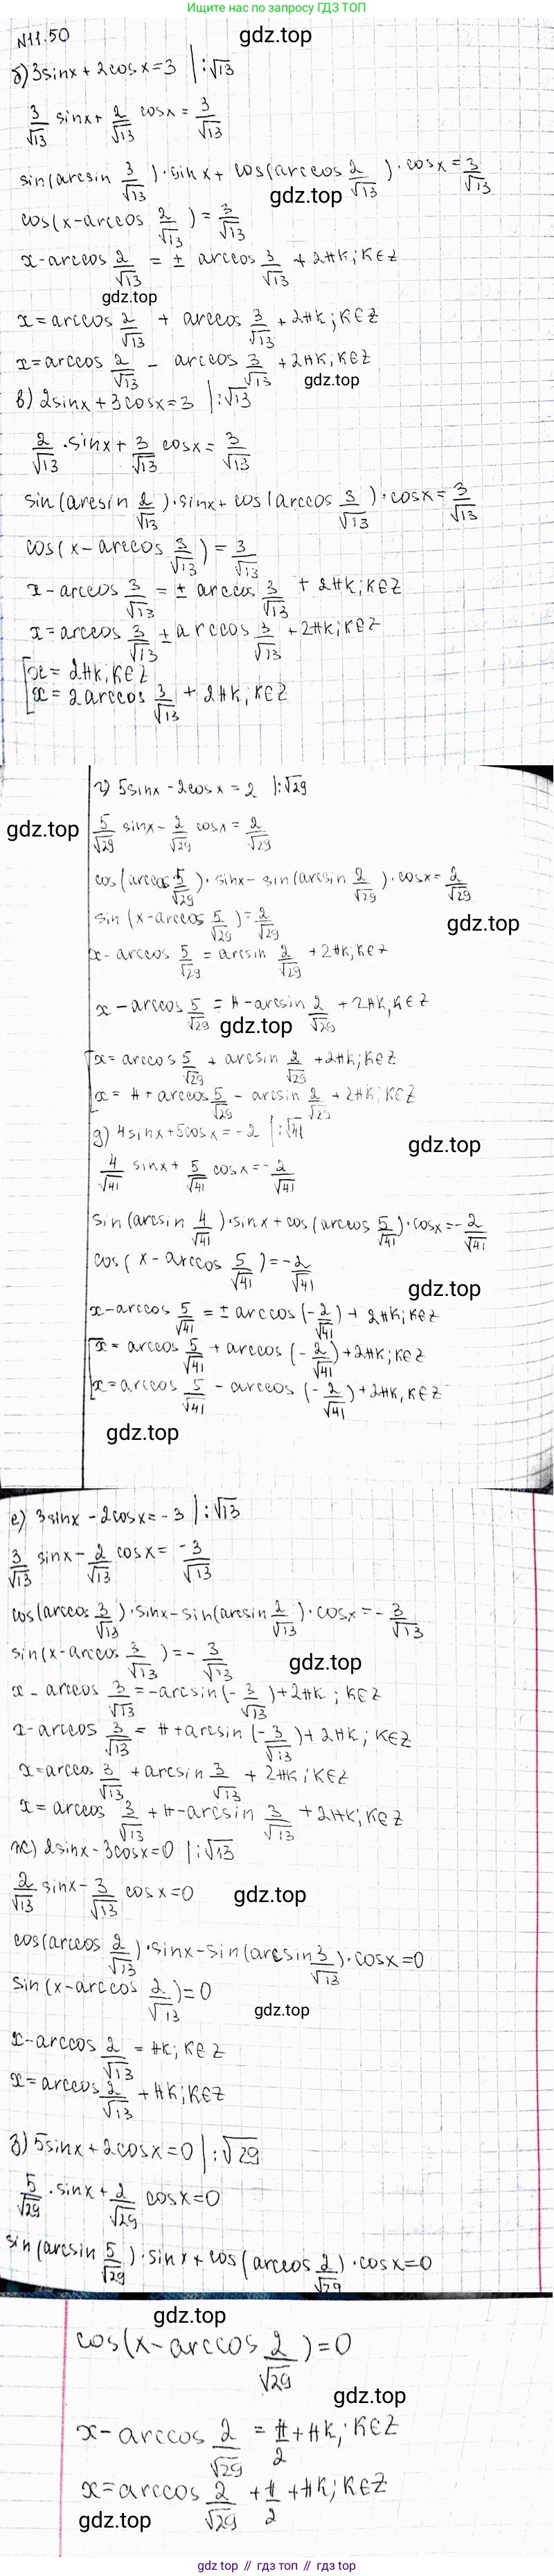 Ищите нас по запросу ГДЗ ТОП
N11.50
gdz.top
б) 3sinx + 2cosx = 3 | : √13
3/√13 sinx + 2/√13 cosx = 3/√13
sin(arcsin 3/√13) · sinx + cos(arccos 2/√13) · cosx = 3/√13
gdz.top
cos(x - arccos 2/√13) = 3/√13
x - arccos 2/√13 = ± arccos 3/√13 + 2πk; k∈Z
gdz.top
x = arccos 2/√13 + arccos 3/√13 + 2πk; k∈Z
x = arccos 2/√13 - arccos 3/√13 + 2πk, k∈Z
gdz.top
в) 2sinx + 3cosx = 3 | : √13
2/√13 · sinx + 3/√13 cosx = 3/√13
sin(arcsin 2/√13) · sinx + cos(arccos 3/√13) · cosx = 3/√13
cos(x - arccos 3/√13) = 3/√13
x - arccos 3/√13 = ± arccos 3/√13 + 2πk; k∈Z
x = arccos 3/√13 ± arccos 3/√13 + 2πk; k∈Z
[x = 2πk; k∈Z
[x = 2arccos 3/√13 + 2πk, k∈Z
г) 5sinx - 2cosx = 2 | : √29
gdz.top
5/√29 sinx - 2/√29 cosx = 2/√29
cos(arccos 5/√29) · sinx - sin(arcsin 2/√29) · cosx = 2/√29
sin(x - arccos 5/√29) = 2/√29
gdz.top
x - arccos 5/√29 = arcsin 2/√29 + 2πk; k∈Z
x - arccos 5/√29 = π - arcsin 2/√29 + 2πk, k∈Z
gdz.top
[x = arccos 5/√29 + arcsin 2/√29 + 2πk; k∈Z
[x = π + arccos 5/√29 - arcsin 2/√29 + 2πk; k∈Z
д) 4sinx + 5cosx = -2 | : √41
gdz.top
4/√41 sinx + 5/√41 cosx = -2/√41
sin(arcsin 4/√41) · sinx + cos(arccos 5/√41) · cosx = -2/√41
cos(x - arccos 5/√41) = -2/√41
gdz.top
x - arccos 5/√41 = ± arccos(-2/√41) + 2πk; k∈Z
[x = arccos 5/√41 + arccos(-2/√41) + 2πk; k∈Z
[x = arccos 5/√41 - arccos(-2/√41) + 2πk, k∈Z
gdz.top
е) 3sinx - 2cosx = -3 | : √13
3/√13 sinx - 2/√13 cosx = -3/√13
cos(arccos 3/√13) · sinx - sin(arcsin 2/√13) · cosx = -3/√13
sin(x - arccos 3/√13) = -3/√13
gdz.top
x - arccos 3/√13 = -arcsin(-3/√13) + 2πk; k∈Z
x - arccos 3/√13 = π + arcsin(-3/√13) + 2πk; k∈Z
x = arccos 3/√13 + arcsin 3/√13 + 2πk; k∈Z
x = arccos 3/√13 + π - arcsin 3/√13 + 2πk; k∈Z
ж) 2sinx - 3cosx = 0 | : √13
2/√13 sinx - 3/√13 cosx = 0
gdz.top
cos(arccos 2/√13) · sinx - sin(arcsin 3/√13) · cosx = 0
sin(x - arccos 2/√13) = 0
gdz.top
x - arccos 2/√13 = πk; k∈Z
x = arccos 2/√13 + πk; k∈Z
з) 5sinx + 2cosx = 0 | : √29
5/√29 · sinx + 2/√29 cosx = 0
sin(arcsin 5/√29) · sinx + cos(arccos 2/√29) · cosx = 0
gdz.top
cos(x - arccos 2/√29) = 0
gdz.top
x - arccos 2/√29 = π/2 + πk; k∈Z
x = arccos 2/√29 + π/2 + πk; k∈Z
gdz.top
gdz.top // гдз топ // gdz.top